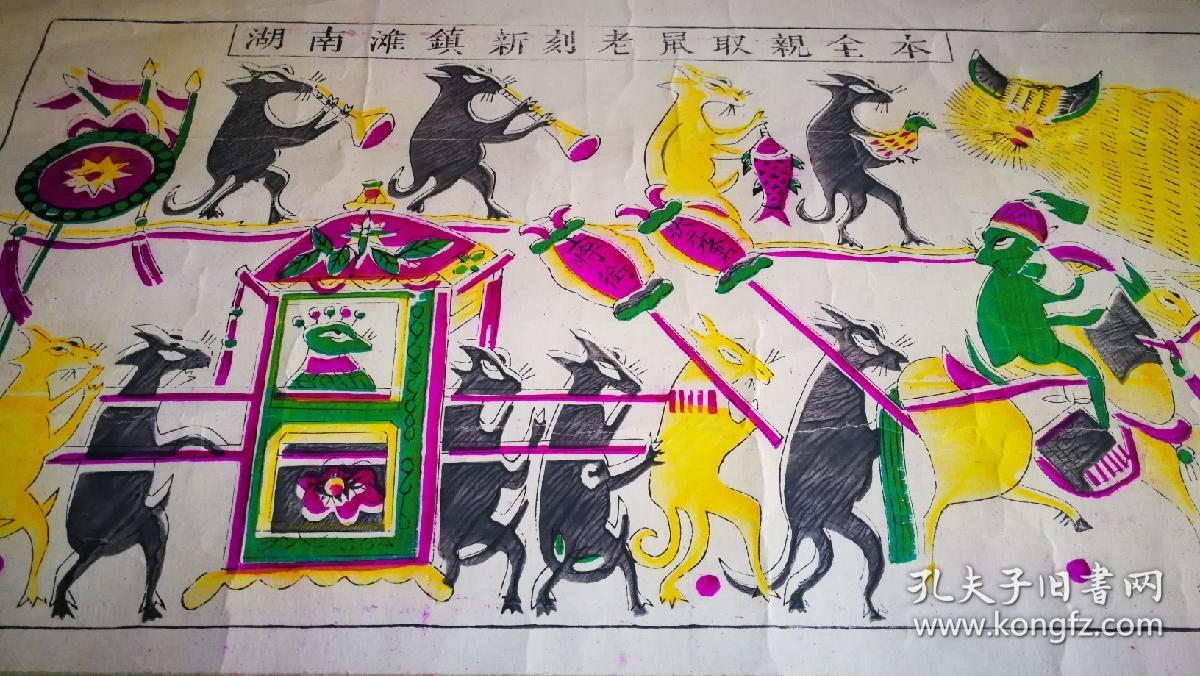 湖南滩鎮新刻老鼠取親全本
孔夫子旧書网
www.kongfz.com